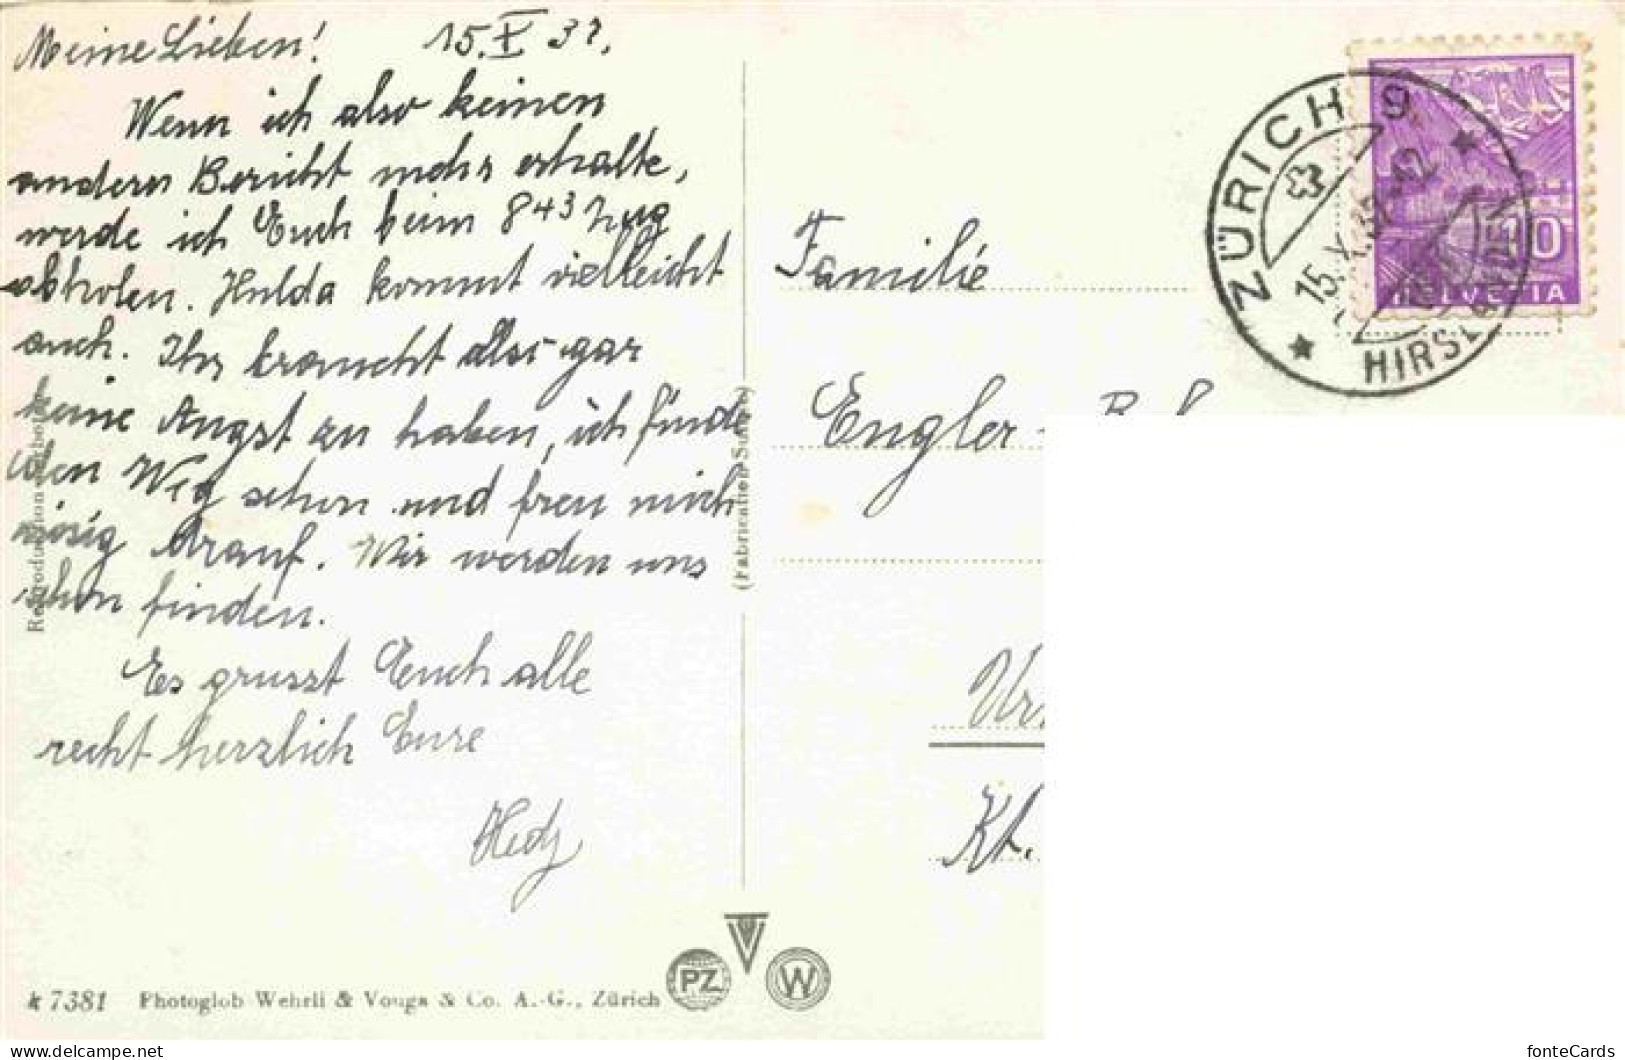 Meine Lieben! 15.X 37.
Wenn ich also keinen
andern Bericht mehr erhalte,
werde ich Euch beim 8 43 Zug
abholen. Hulda kommt vielleicht
auch. Ihr braucht also gar
keine Angst zu haben, ich finde
den Weg schon und freu mich
riesig drauf. Wir werden uns
schon finden.
Es grusst Euch alle
recht herzlich Eure
Hedy
Familie
Engler
Kt.
ZÜRICH 9
HIRSLANDEN
10
HELVETIA
(Fabrication Suisse)
PZ
W
7381 Photoglob Wehrli & Vouga & Co. A.-G., Zürich
delcampe.net
fonteCards